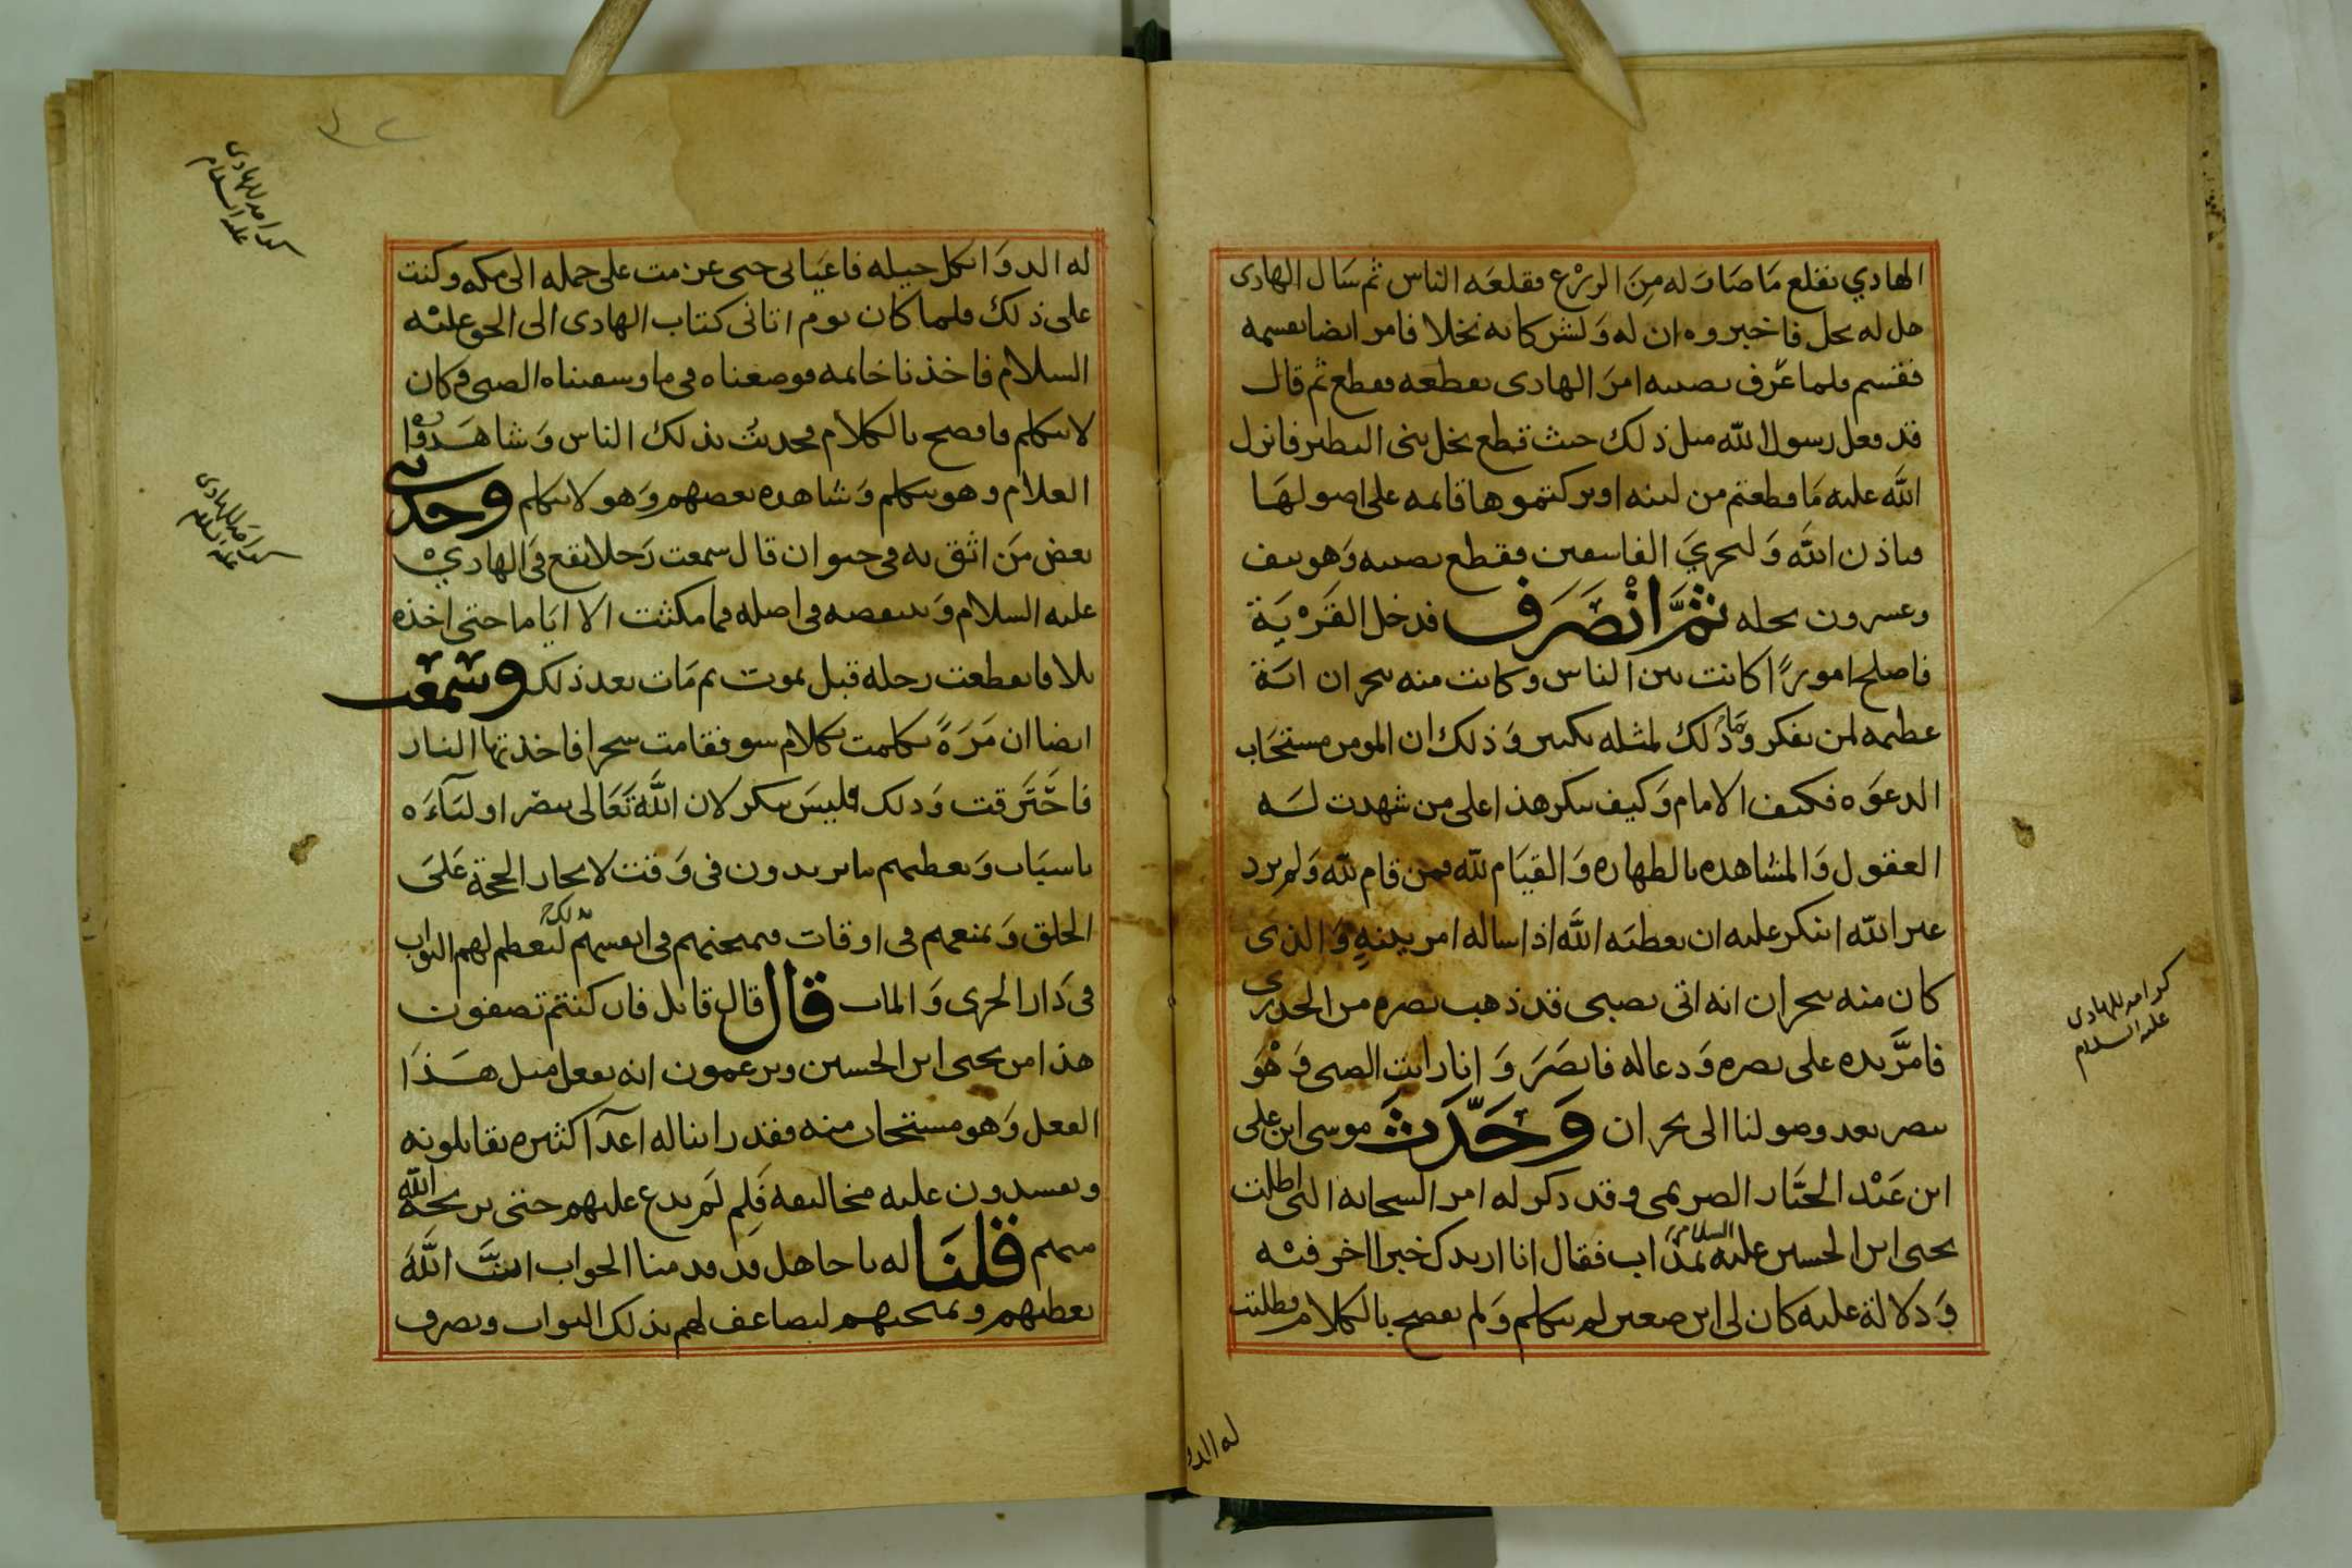 الهادي بقلع ما صاب له من الزرع فقلعه الناس ثم سال الهادى
هل له نخل فاخبروه ان له ولشركائه نخلا فامر ايضا بقسمه
فقسم فلما عرف نصيبه امر الهادى بقطعه فقطع ثم قال
قد فعل رسول الله مثل ذلك حيث قطع نخل بنى النضير فانزل
الله عليه ما قطعتم من لينه او تركتموها قائمه على اصولها
فباذن الله وليخزي الفاسقين فقطع نصيبه وهو نيف
وعشرون نخله ثم انصرف فدخل القرية
فاصلح امورا كانت بين الناس وكانت منه بنجران اية
عظيمه لمن تفكر وما ذلك لمثله بكبير وذلك ان المومن مستجاب
الدعوه فكيف الامام وكيف ينكر هذا على من شهدت له
العقول والمشاهده بالطهاره والقيام لله فمن قام لله ولم يرد
غير الله اينكر عليه ان يعطيه الله اذا ساله امر دينه والذى
كان منه بنجران انه اتى بصبى قد ذهب بصره من الجدرى
فامر يده على بصره ودعا له فابصر وانا رايت الصبى وهو
يبصر بعد وصولنا الى نجران وحدث موسى ابن على
ابن عبد الجبار الصريمى وقد ذكر له امر السحابه التى اظلت
يحيى ابن الحسين عليه السلام بمذاب فقال انا ازيدك خبرا اخر فيه
ودلالة عليه كان لى ابن صغير لم يتكلم ولم يفصح بالكلام فطلبت
له الدو
كرامه للهادى
عليه السلام
له الدوا بكل حيله فاعيانى حتى عزمت على حمله الى مكه وكنت
على ذلك فلما كان يوم اتانى كتاب الهادى الى الحق عليه
السلام فاخذنا خاتمه فوضعناه فى ما وسقيناه الصبى فكان
لا يتكلم فافصح بالكلام فحديث بذلك الناس وشاهدوا
الغلام وهو يتكلم وشاهده بعضهم وهو لا يتكلم وحدثنى
بعض من اثق به فى حيوان قال سمعت رجلا يقع فى الهادي
عليه السلام وينتقصه فى اصله فما مكثت الا اياما حتى اخذه
بلا فانقطعت رجله قبل يموت ثم مات بعد ذلك وسمعت
ايضا ان مره تكلمت بكلام سو فقامت سحرا فاخذتها النار
فاحترقت وذلك فليس ينكر لان الله تعالى ينصر اوليآءه
باسباب ويعطيهم ما يريدون فى وقت لايجاز الحجة على
الخلق ويمنعهم فى اوقات فيمتحنهم فى انفسهم بذلك ليعظم لهم الثواب
فى دار الخزى والماب قال قال قائل فان كنتم تصفون
هذا من يحيى ابن الحسين وتزعمون انه يفعل مثل هذا
الفعل وهو مستجاب منه فقد راينا له اعدآ كثيره يقاتلونه
ويفسدون عليه مخاليفه فلم لم يدع عليهم حتى يريحه الله
منهم قلنا له يا جاهل قد قدمنا الجواب ان الله
يعطيهم ويمتحنهم ليضاعف لهم بذلك الثواب ويصرف
كرامه للهادى
عليه السلام
كرامه للهادى
عليه السلام